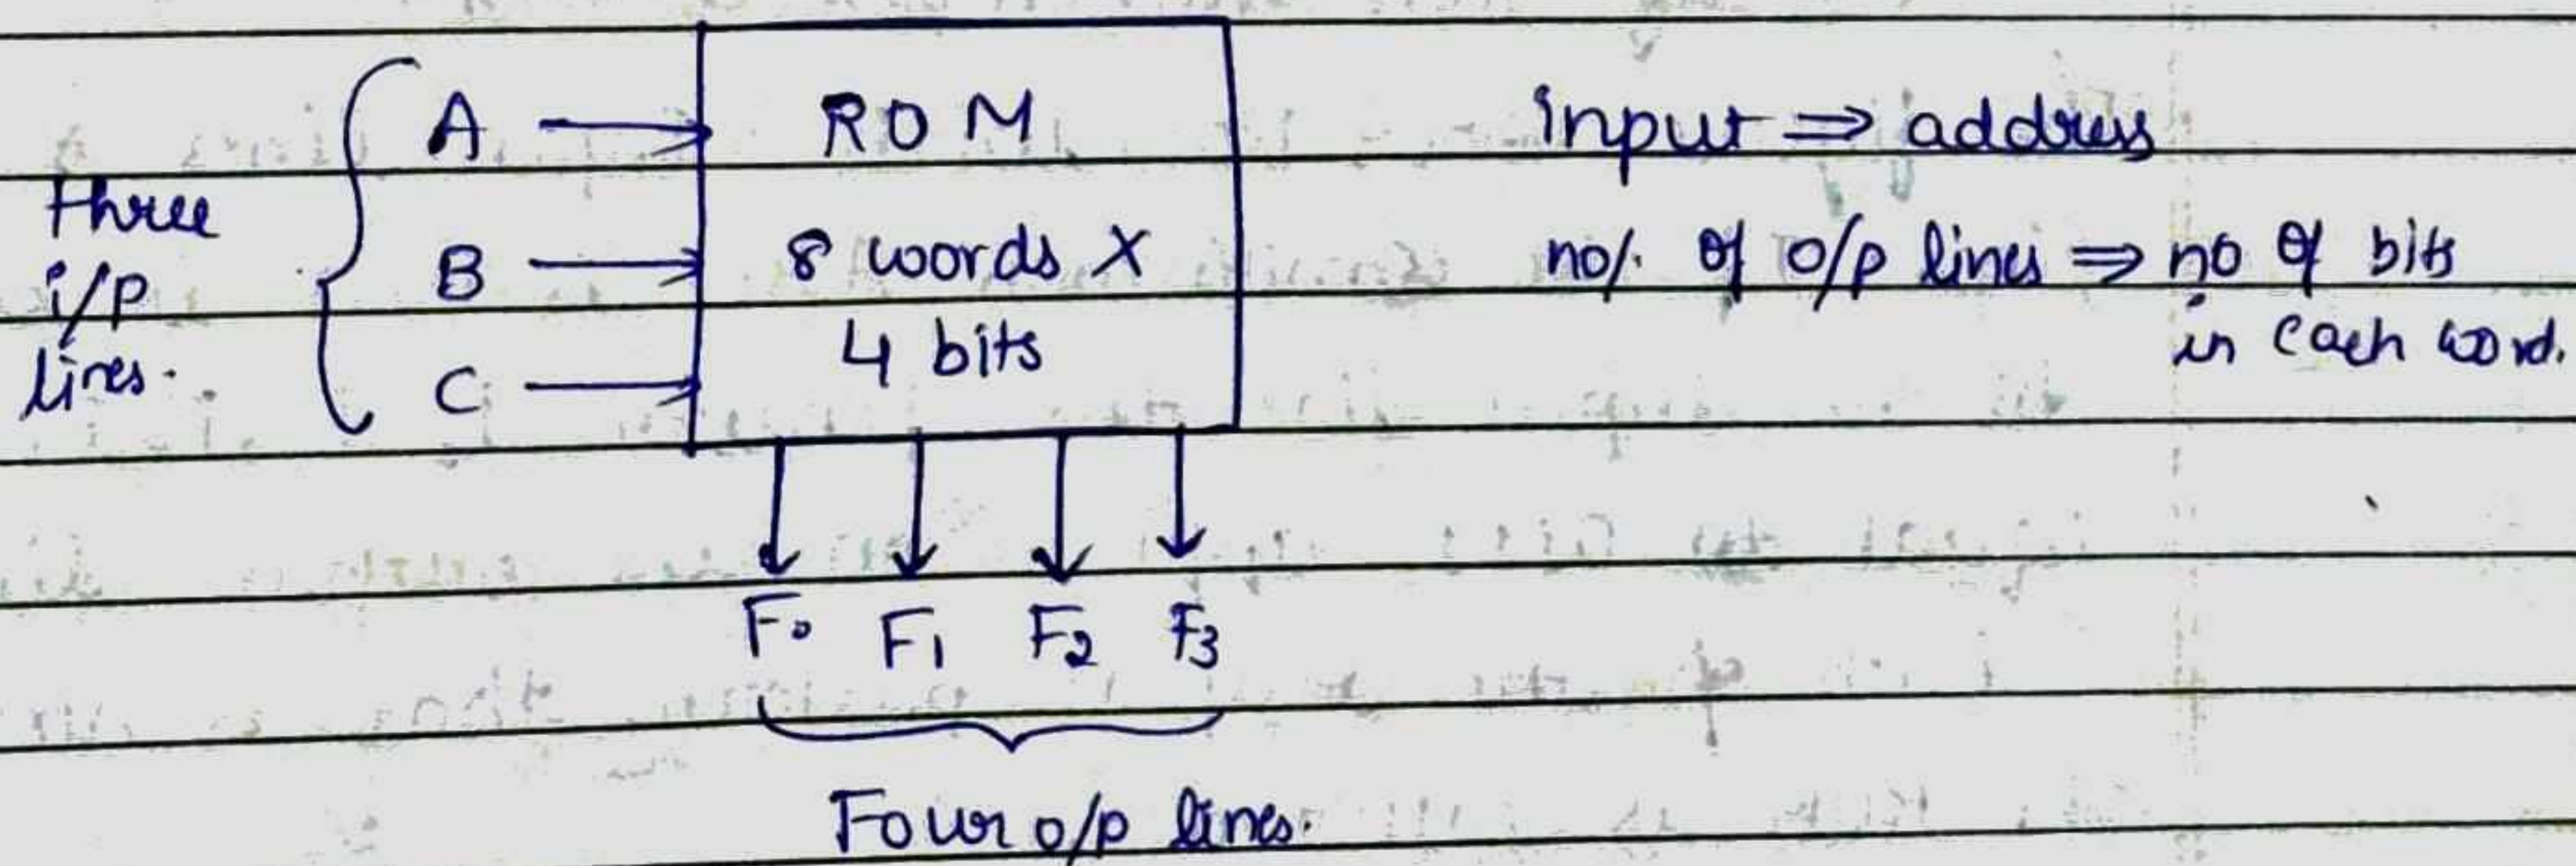 Three
i/p
lines.
A
B
C
ROM
8 words X
4 bits
Input ⇒ address
no/. of o/p lines ⇒ no of bits
in each word.
F0 F1 F2 F3
Four o/p lines.